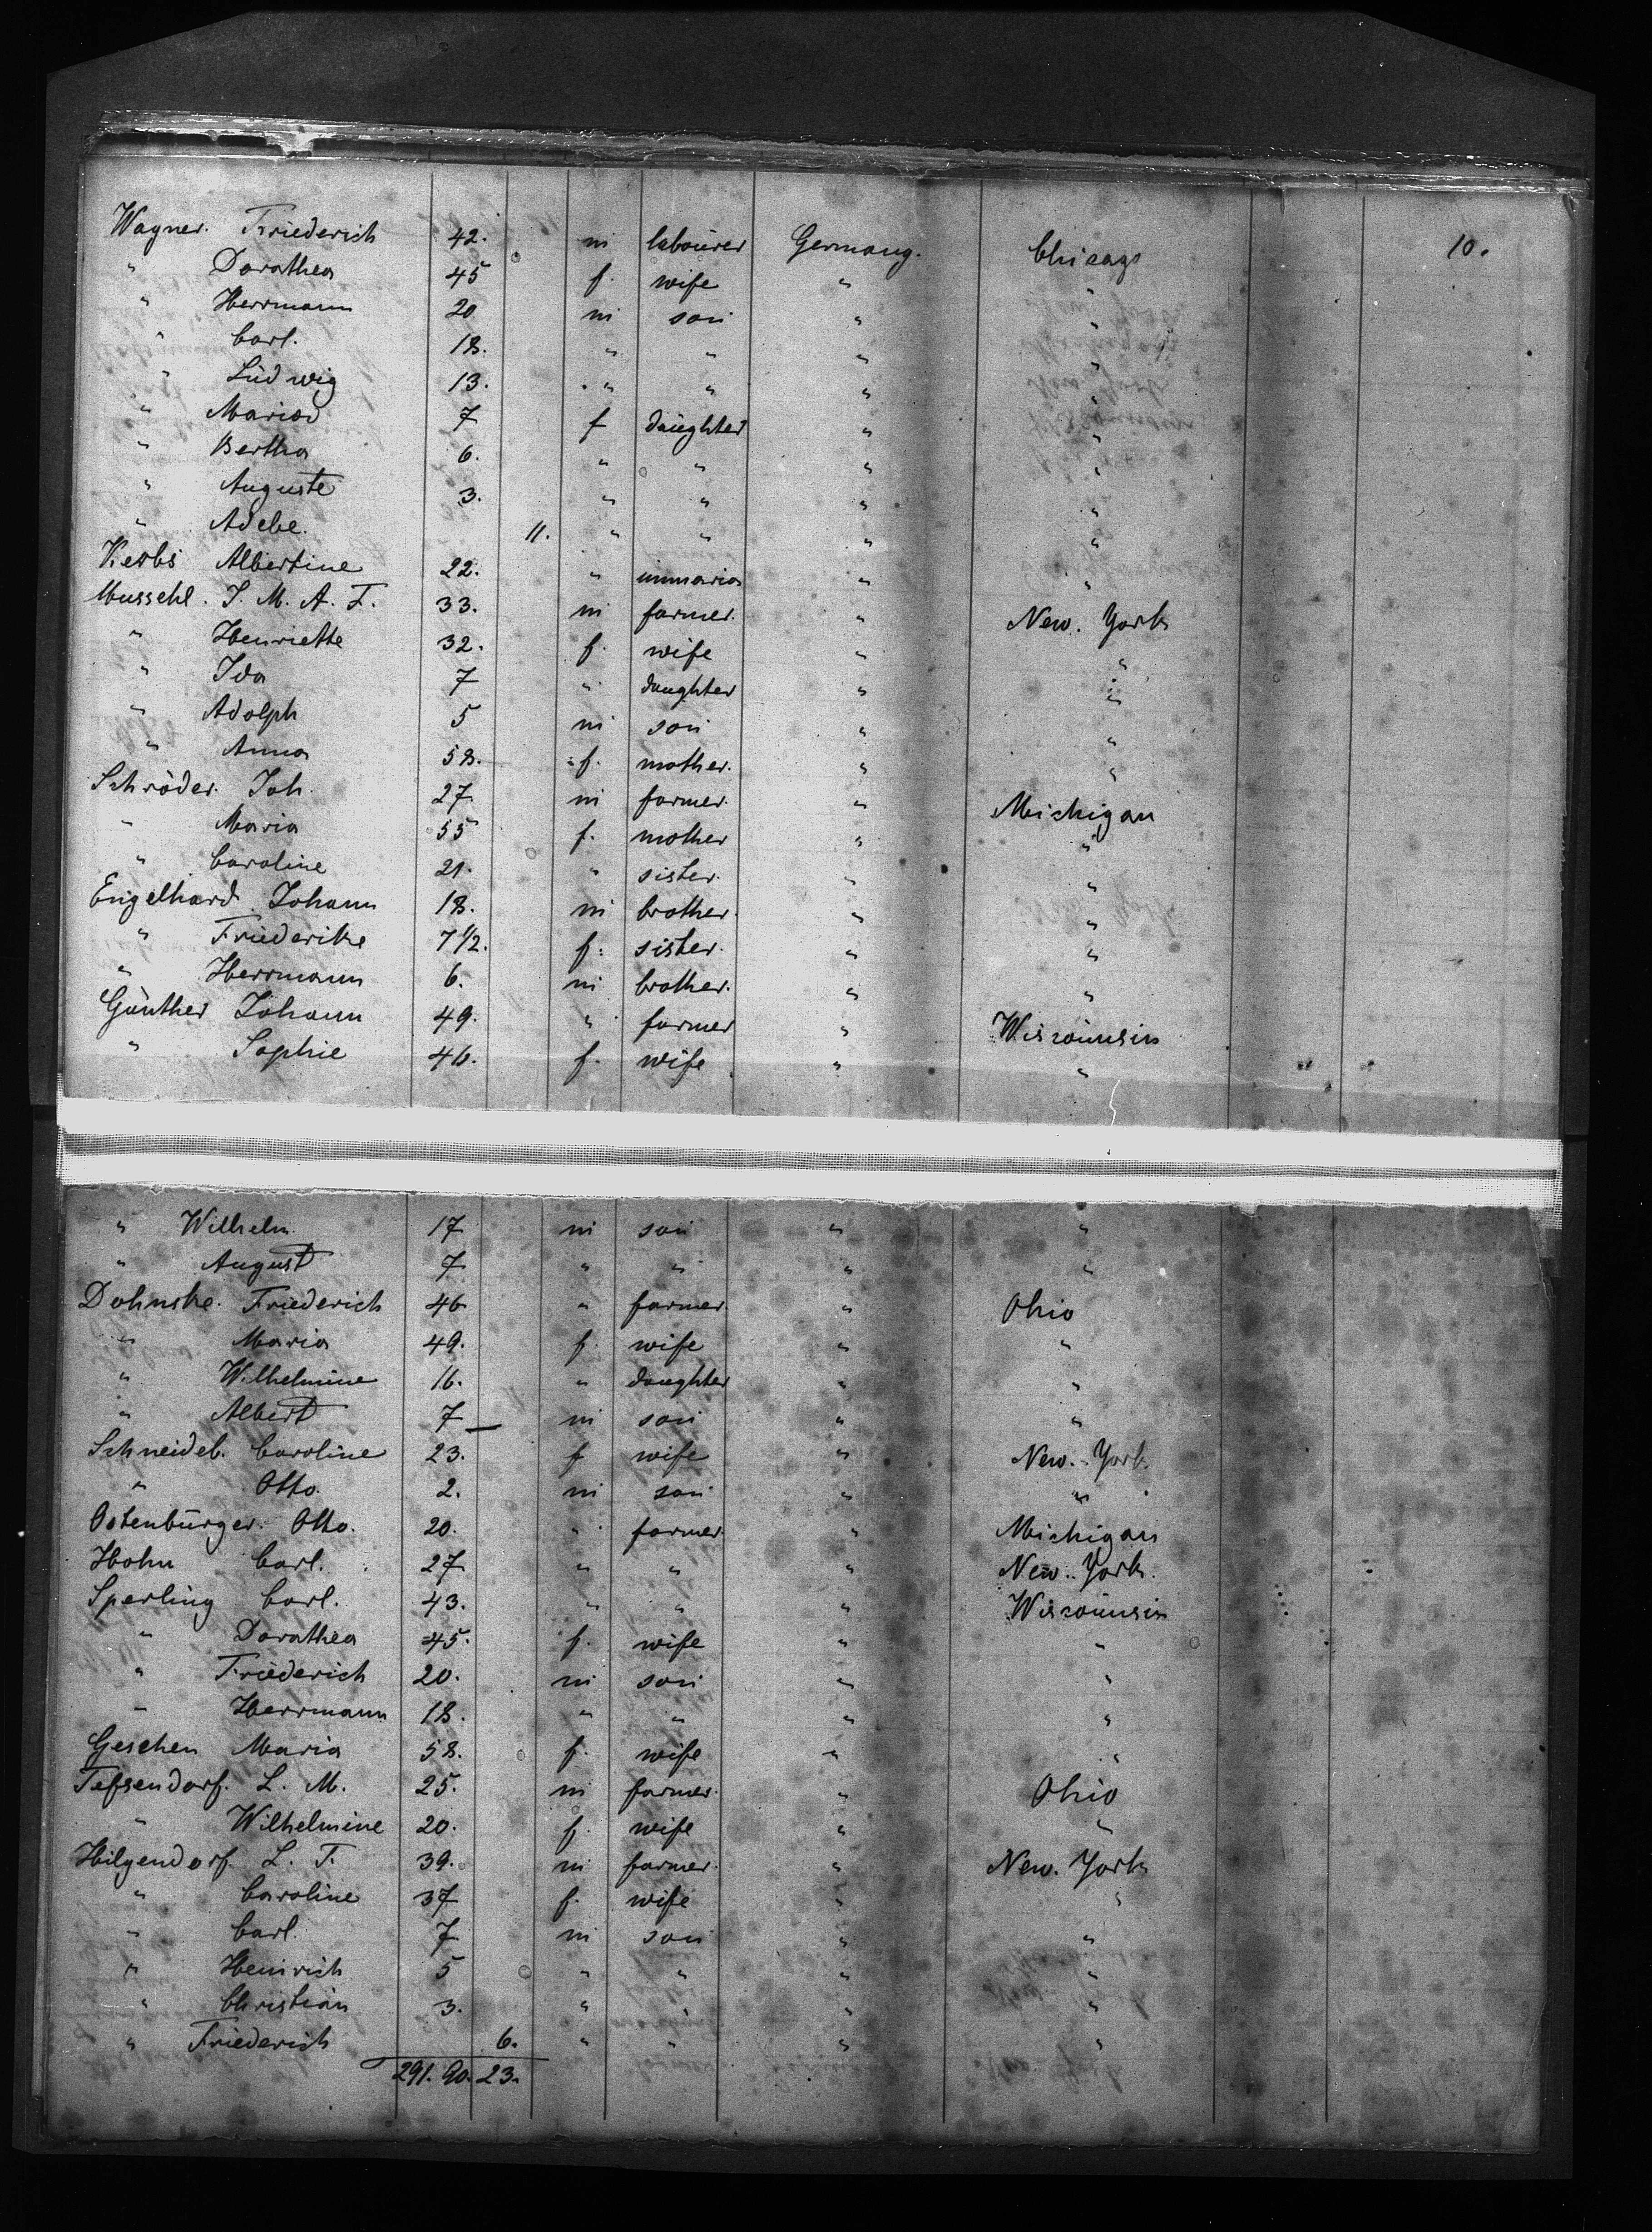 Wagner. Friederich 42. m labourer Germany. Chicago 10.
" Dorathea 45 f. wife " "
" Herrmann 20 m son " "
" Carl. 18. " " " "
" Ludwig 13. " " " "
" Maria 7 f daughter " "
" Bertha 6. " " " "
" Auguste 3. " " " "
" Adele. 11. " " " "
Krebs Albertine 22. " " "
Mussehl. J. M. A. F. 33. m farmer. " New. York
" Henriette 32. f. wife " "
" Ida 7 " daughter " "
" Adolph 5 m son " "
" Anna 58. f. mother. " "
Schröder. Joh. 27. m farmer. " Michigan
" Maria 55 f. mother " "
" Caroline 21. " sister. " "
Engelhard. Johann 18. m brother. " "
" Friederike 7 1/2. f. sister. " "
" Herrmann 6. m brother. " "
Günther Johann 49. " farmer " Wisconsin
" Sophie 46. f. wife " "
" Wilhelm 17 m son " "
" August 7 " " " "
Dohnske. Friederich 46 " farmer. " Ohio
" Maria 49. f. wife " "
" Wilhelmine 16. " daughter " "
" Albert 7 m son " "
Caroline 23. f wife " New. York
" Otto. 2. m son " "
Ostenburger. Otto. 20. " farmer. " Michigan
Hohn Carl. 27 " " " New. York.
Sperling Carl. 43. " " " Wisconsin
" Dorathea 45. f. wife " "
" Friederich 20. m son " "
" Herrmann 18. " " " "
Geschen Maria 58. f. wife " "
Tessendorf. L. M. 25. m farmer. " Ohio
" Wilhelmine 20. f. wife " "
Hilgendorf. L. F. 39. m farmer. " New. York
" Caroline 37 f. wife " "
" Carl. 7 m son " "
" Heinrich 5 " " " "
" Christian 3. " " " "
" Friederich 6. " " " "
291. 90. 23.